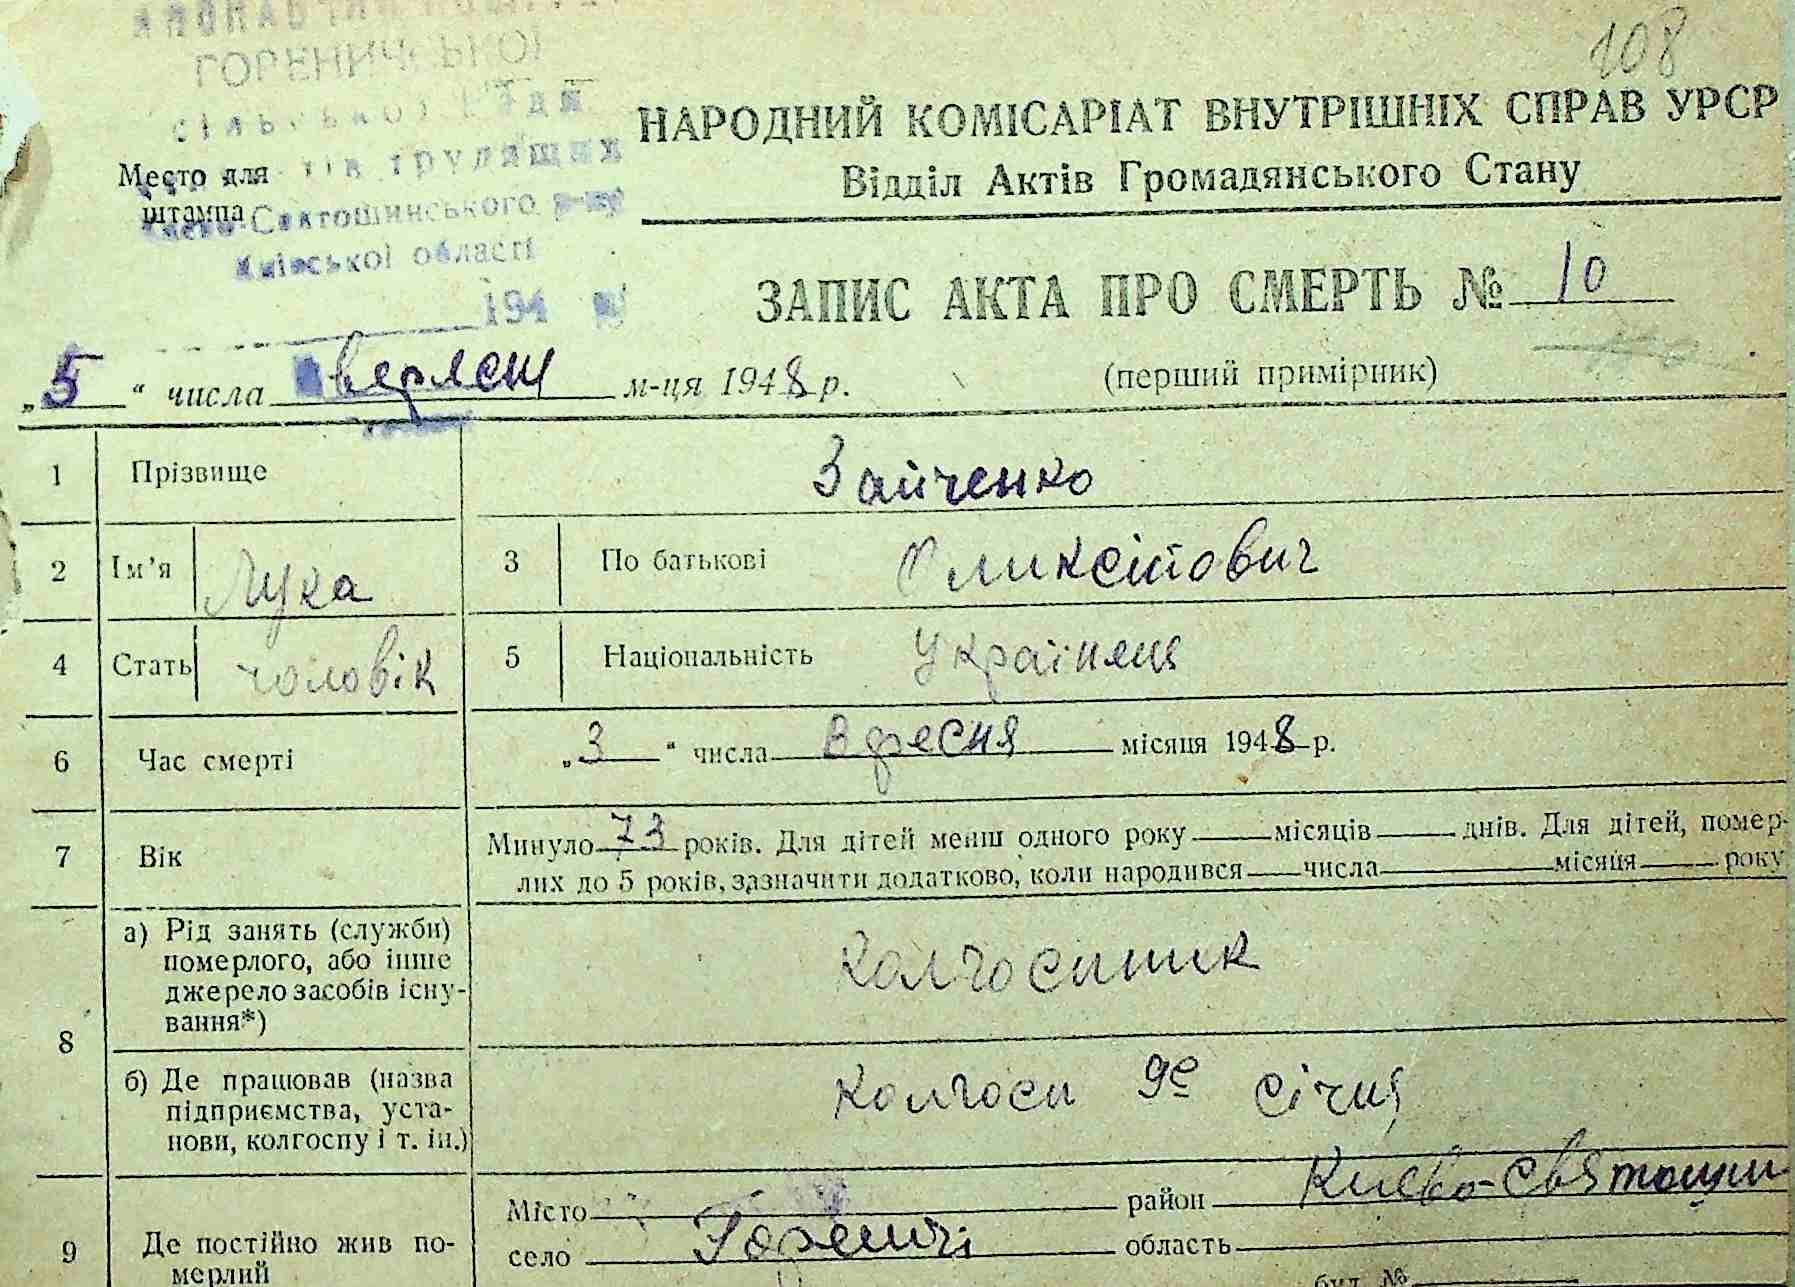 108
ГОРЕНИЧСЬКОЇ
сільської Ради
трудящих
Место для
штампа
Святошинського р-ну
Київської області
194
НАРОДНИЙ КОМІСАРІАТ ВНУТРІШНІХ СПРАВ УРСР
Відділ Актів Громадянського Стану
ЗАПИС АКТА ПРО СМЕРТЬ № 10
(перший примірник)
„5“ числа м-ця 1948 р.
1 Прізвище Зайченко
2 Ім'я Лука 3 По батькові
4 Стать чоловік 5 Національність Українец
6 Час смерті „3“ числа вресня місяця 1948 р.
7 Вік Минуло 73 років. Для дітей менш одного року місяців днів. Для дітей, помер-
лих до 5 років, зазначити додатково, коли народився числа місяця року
8 а) Рід занять (служби)
померлого, або інше
джерело засобів існу-
вання*)
Колгоспник
б) Де працював (назва
підприємства, уста-
нови, колгоспу і т. ін.)
Колгосп 9е січня
9 Де постійно жив по-
мерлий
Місто район Києво-Святошин
село Гореничі область
буд. №